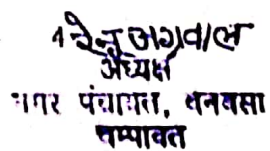 रेनु अग्रवाल
अध्यक्ष
नगर पंचायत, बनबसा
चम्पावत